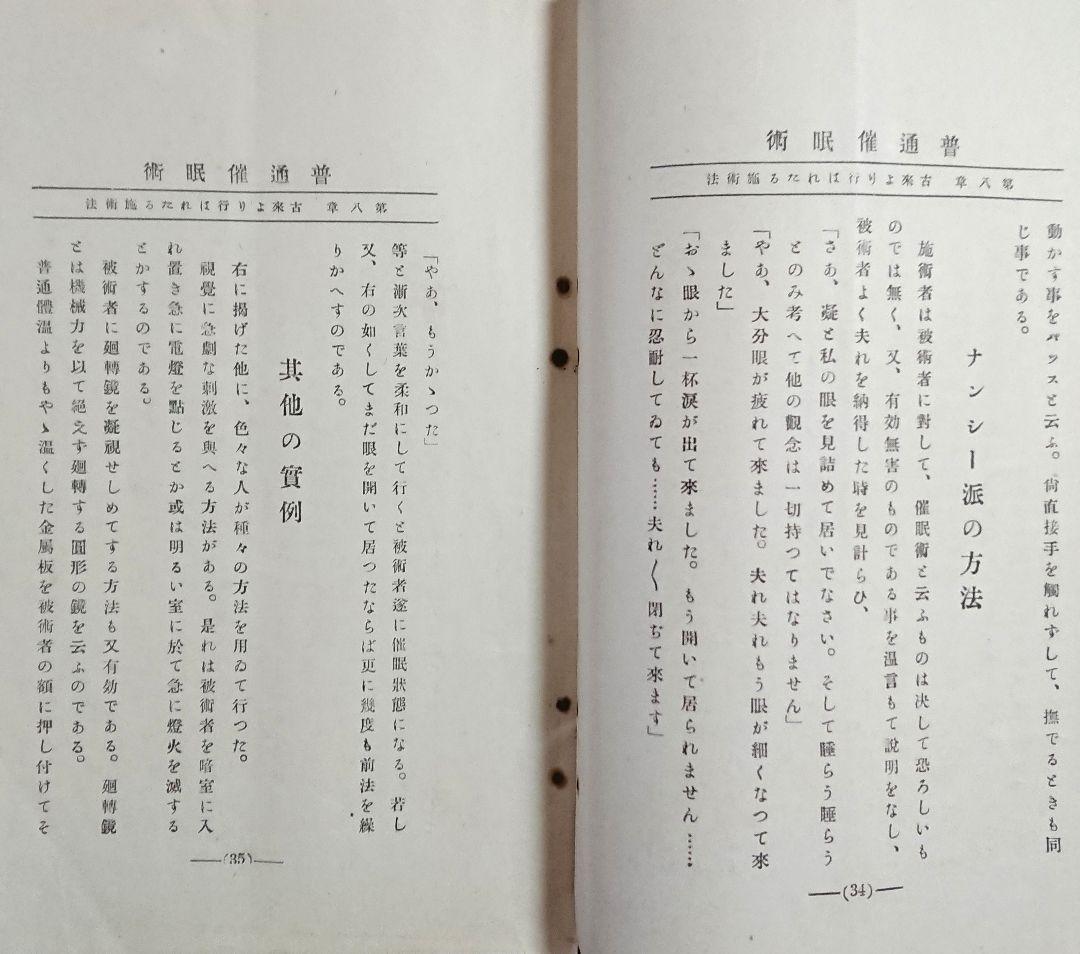 普通催眠術
第八章 古來より行はれたる施術法
動かす事をパッスと云ふ。尙直接手を觸れずして、撫でるときも同
じ事である。
ナンシー派の方法
施術者は被術者に對して、催眠術と云ふものは决して恐ろしいも
のでは無く、又、有効無害のものである事を温言もて説明をなし、
被術者よく夫れを納得した時を見計らひ、
「さあ、凝と私の眼を見詰めて居いでなさい。そして睡らう睡らう
とのみ考へて他の觀念は一切持つてはなりません」
「やあ、大分眼が疲れて來ました。夫れ夫れもう眼が細くなつて來
ました」
「おゝ眼から一杯涙が出て來ました。もう開いて居られません……
どんなに忍耐してゐても……夫れ〱閉ぢて來ます」
(34)
普通催眠術
第八章 古來より行はれたる施術法
「やあ、もうかゝつた」
等と漸次言葉を柔和にして行くと被術者遂に催眠狀態になる。若し
又、右の如くしてまだ眼を開いて居つたならば更に幾度も前法を繰
りかへすのである。
其他の實例
右に揭げた他に、色々な人が種々の方法を用ゐて行つた。
視覺に急劇な刺激を與へる方法がある。是れは被術者を暗室に入
れ置き急に電燈を點じるとか或は明るい室に於て急に燈火を滅する
とかするのである。
被術者に廻轉鏡を凝視せしめてする方法も又有効である。廻轉鏡
とは機械力を以て絕えず廻轉する圓形の鏡を云ふのである。
普通體溫よりもやゝ溫くした金屬板を被術者の額に押し付けてそ
(35)